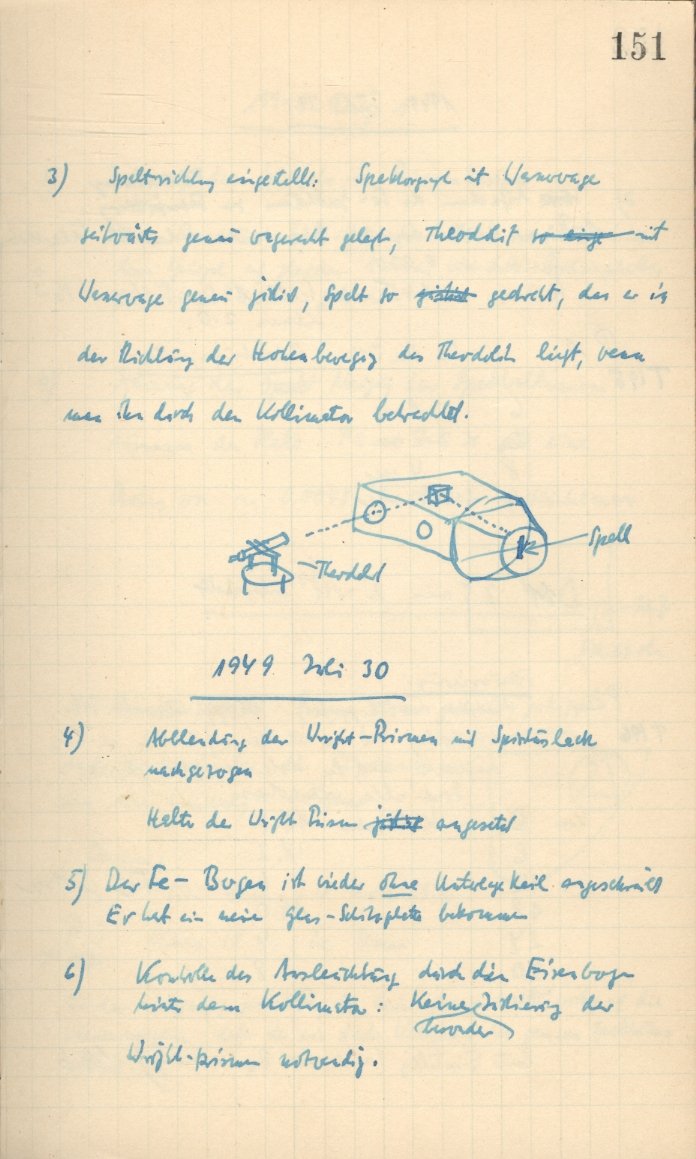 151
3) Spaltrichtung eingestellt: Spektrograph mit Wasserwage
seitwärts genau wagerecht gelegt, Theodolit so einge mit
Wasserwage genau justiert, Spalt so justiert gedreht, das er in
der Richtung der Höhenbewegung des Theodolits liegt, wenn
man ihn durch den Kollimator betrachtet.
Spalt
Theodolit
1949 Juli 30
4) Abblendung der Wright-Prismen mit Spirituslack
nachgezogen
Halter der Wright Prismen justiert angesetzt
5) Der Fe-Bogen ist wieder ohne Unterlege Keil angeschraubt
Er hat ein neue Glas-Schutzplatte bekommen
6) Kontrolle der Ausleuchtung durch den Eisenbogen
hinter dem Kollimator: Keine Justierung der
Wright-prismen notwendig.